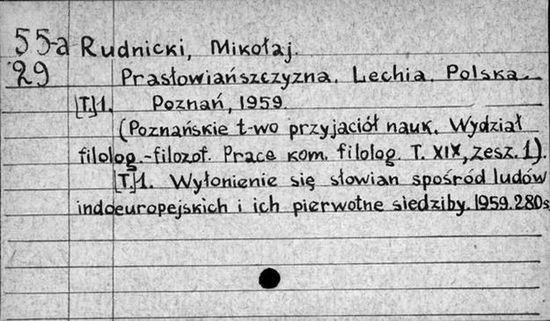 55-a Rudnicki, Mikołaj.
29 Prasłowiańszczyzna. Lechia. Polska.
[T.]1. Poznań, 1959.
(Poznańskie t-wo przyjaciół nauk. Wydział
filolog.-filozof. Prace kom. filolog. T. XIX, zesz. 1).
[T.]1. Wyłonienie się słowian spośród ludów
indoeuropejskich i ich pierwotne siedziby. 1959. 280s